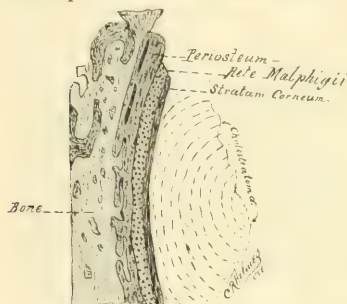 Periosteum
Rete Malphigii
Stratam Corneum
Cholesteatom
Bone